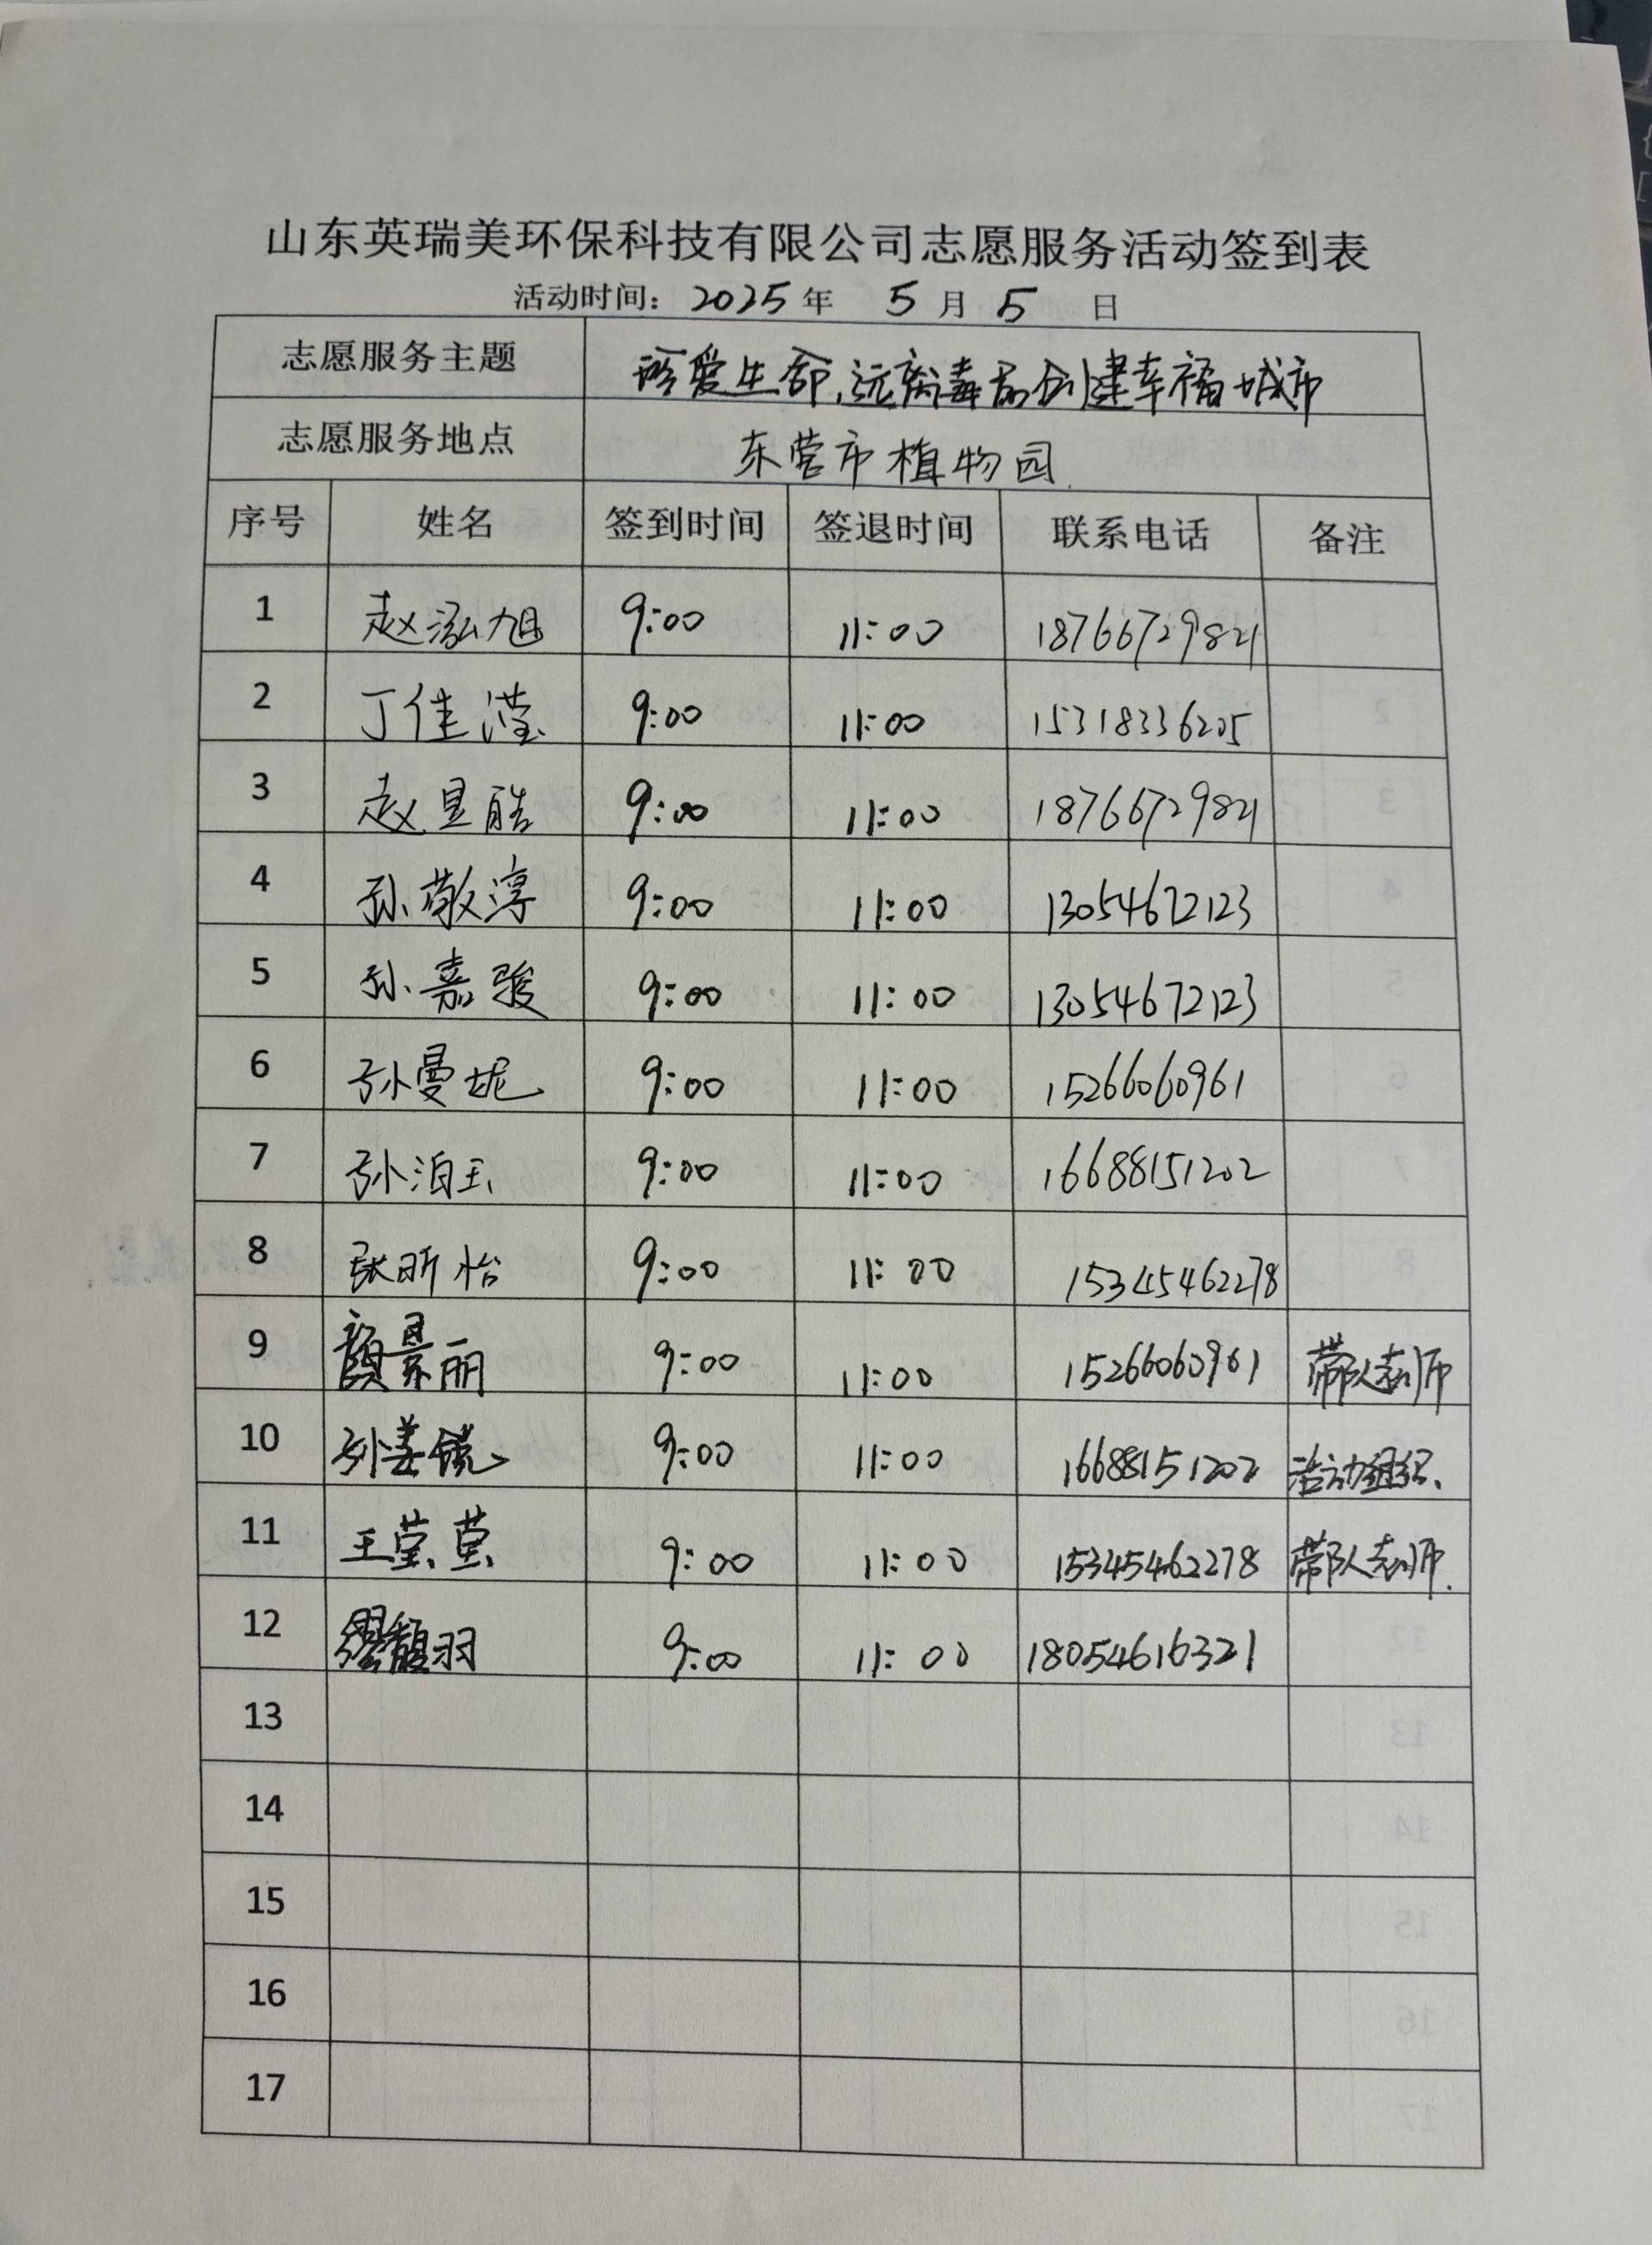 山东英瑞美环保科技有限公司志愿服务活动签到表
活动时间：2025年 5月5 日
志愿服务主题 珍爱生命,远离毒品创建幸福城市
志愿服务地点 东营市植物园
序号 姓名 签到时间 签退时间 联系电话 备注
1 赵泓旭 9:00 11:00 18766729821
2 丁佳滢 9:00 11:00 15318336205
3 赵昱皓 9:00 11:00 18766729821
4 孙敬淳 9:00 11:00 13054672123
5 孙嘉骏 9:00 11:00 13054672123
6 孙曼妮 9:00 11:00 15266060961
7 孙泊玉 9:00 11:00 16688151202
8 张昕怡 9:00 11:00 15345462278
9 颜景丽 9:00 11:00 15266060961 带队老师
10 孙姜 9:00 11:00 16688151202 活动组织
11 王莹莹 9:00 11:00 15345462278 带队老师
12 缪馥羽 9:00 11:00 18054616321
13
14
15
16
17